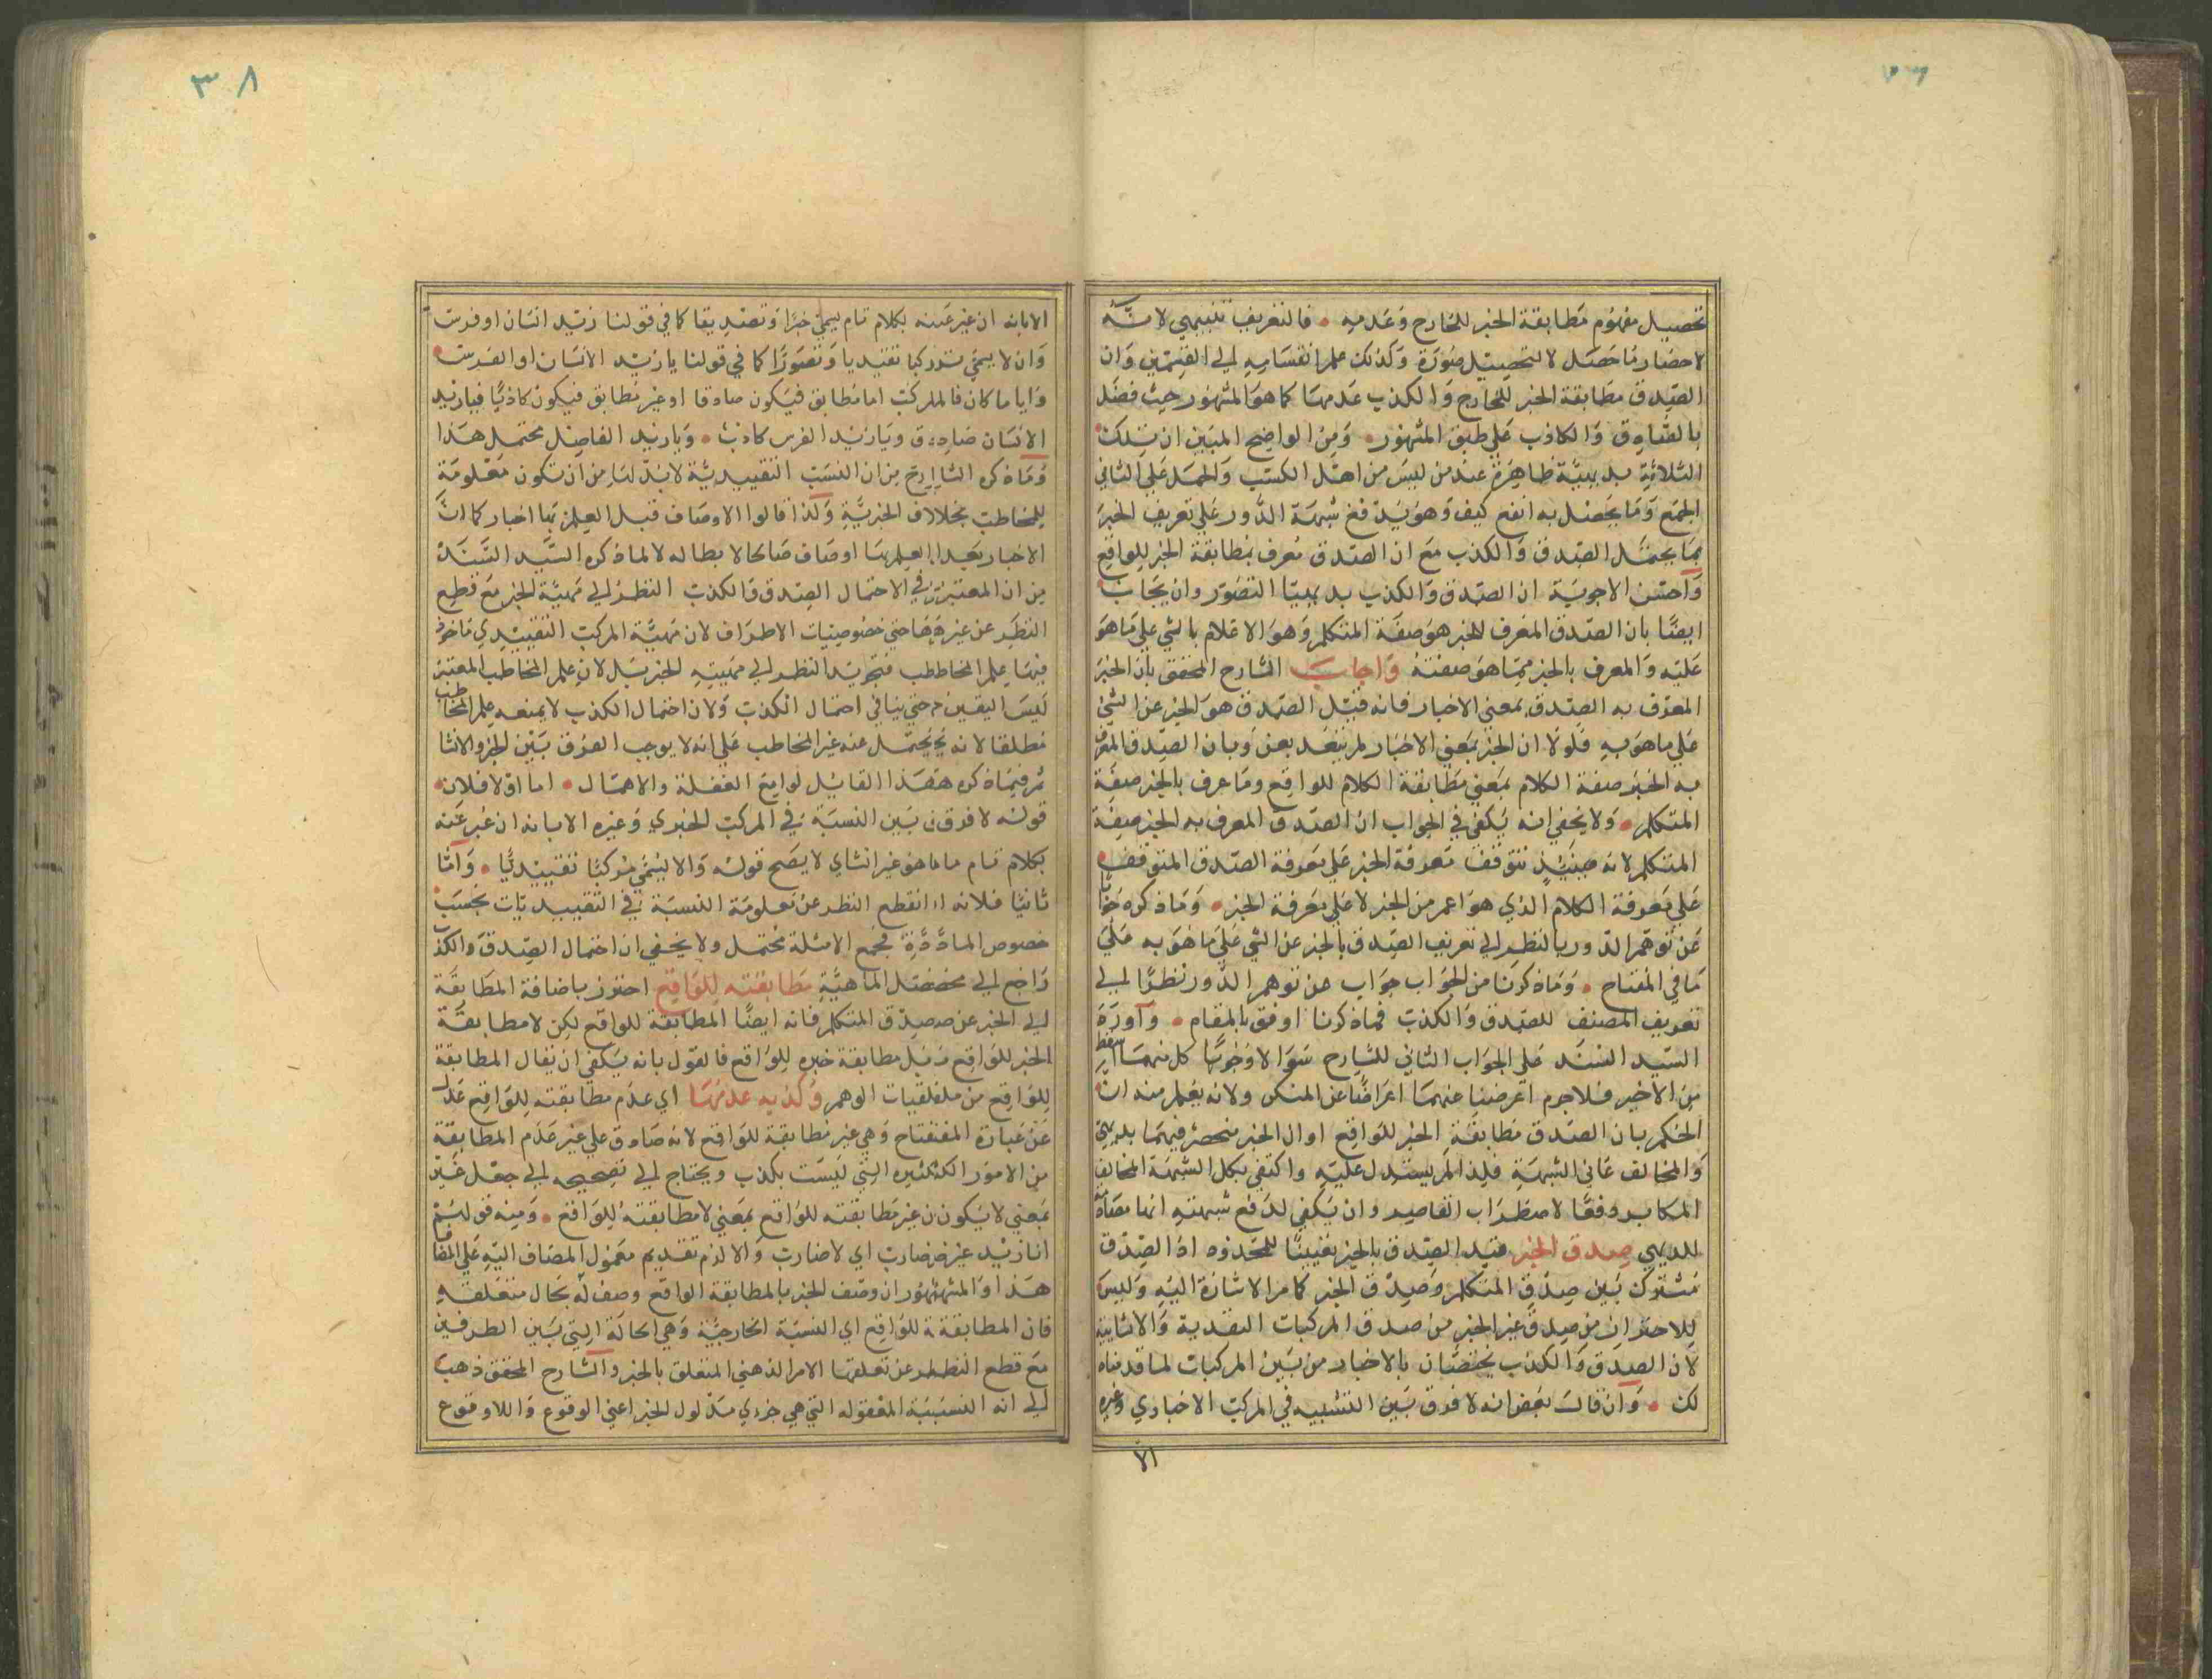 ٣٨
تحصيل مفهوم مطابقة الخبر للخارج وعدمه فالتعريف تنبيهي لانه
لاحضار ما حصل لا لتحصيل صورة وكذلك علم انقسامه الى القسمين وان
الصدق مطابقة الخبر للخارج والكذب عدمها كما هو المشهور حيث فصل
بالصادق والكاذب على طبق المشهور ومن الواضح المبين ان تلك
الثلاثة بديهية ظاهرة عند من ليس من اهل الكسب والحمل على الثاني
الجمع وما يحصل به انفع كيف وهو يدفع شبهة الدور على تعريف الخبر
بما يحتمل الصدق والكذب مع ان الصدق معرف بمطابقة الخبر للواقع
واحسن الاجوبة ان الصدق والكذب بديهيا التصور وان يجاب
ايضا بان الصدق المعرف للخبر هو صفة المتكلم وهو الاعلام بالشي على ما هو
عليه والمعرف بالخبر مما هو صفته واجاب الشارح المحقق بان الخبر
المعرف به الصدق بمعنى الاخبار فانه قيل الصدق هو الخبر عن الشي
على ما هو به فلولا ان الخبر بمعنى الاخبار لم يتعد بعن وبان الصدق المعرف
به الخبر صفة الكلام بمعنى مطابقة الكلام للواقع وما عرف بالخبر صفة
المتكلم ولا يخفى انه يكفي في الجواب ان الصدق المعرف به الخبر صفة
المتكلم لانه حينئذ تتوقف معرفة الخبر على معرفة الصدق المتوقف
على معرفة الكلام الذي هو اعم من الخبر لا على معرفة الخبر وما ذكره جوابا
عن توهم الدور بالنظر الى تعريف الصدق بالخبر عن الشي على ما هو به على
ما في المفتاح وما ذكرنا من الجواب جواب عن توهم الدور نظرا الى
تعريف المصنف للصدق والكذب فما ذكرنا اوفق بالمقام واورد
السيد السند على الجواب الثاني للشارح سؤالا وجوبا كل منهما اسقط
من الاخير فلا جرم اعرضنا عنهما اعراضا عن المنكر ولانه يعلم منه ان
الحكم بان الصدق مطابقة الخبر للواقع اوال الخبر منحصر فيهما بديهي
والمخالف عانى الشبهة فلذا لم يستدل عليه واكتفى بكل الشبهة المخالف
المكابر دفعا لاضطراب القاصر وان يكفي لدفع شبهته انها مصادمة
للبديهي صدق الخبر قيد الصدق بالخبر تعيينا للمحدود اذ الصدق
مشترك بين صدق المتكلم وصدق الخبر كما مر الاشارة اليه وليس
للاحتراز من صدق غير الخبر من صدق المركبات التقدية والانشائية
لان الصدق والكذب يختصان بالاخبار من بين المركبات لما قدمناه
لك وان قال بعض انه لا فرق بين التشبيه في المركب الاخباري وغيره
الا
الا بانه ان عبر عنه بكلام تام يسمى خبرا وتصديقا كما في قولنا زيد انسان او فرس
وان لا يسمى مركبا تقيديا وتصورا كما في قولنا يا زيد الانسان او الفرس
وايا ما كان فالمركب اما مطابق فيكون صادقا او غير مطابق فيكون كاذبا فيا زيد
الانسان صادق ويا زيد الفرس كاذب ويا زيد الفاضل محتمل هذا
وما ذكره الشارح من ان النسب التقييدية لا بد لها من ان تكون معلومة
للمخاطب بخلاف الخبرية ولذا قالوا الاوصاف قبل العلم بها اخبار كما ان
الاخبار بعد العلم بها اوصاف صالحا لابطاله لا لما ذكره السيد السند
من ان المعتبر في الاحتمال الصدق والكذب النظر الى مهية الخبر مع قطع
النظر عن غيرها حتى خصوصيات الاطراف لان مهية المركب التقييدي ماخوذ
فيها علم المخاطب فتجريد النظر الى مهيته الخبر بل لان علم المخاطب المعتبر
ليس اليقين حتى ينافي احتمال الكذب ولان احتمال الكذب لا يمنعه علم المخاطب
مطلقا لانه يحتمل عند غير المخاطب على انه لا يوجب الفرق بين الخبر والانشا
ثم فيما ذكره هذا القايل لوامع الغفلة والاهمال اما اولا فلان
قوله لا فرق بين النسبة في المركب الخبري وغيره الا بانه ان عبر عنه
بكلام تام ما ما هو غير انشاي لا يصح قوله والا ليسمى مركبا تقييديا واما
ثانيا فلانه اذا انقطع النظر عن معلومة النسبة في التقييديات بحسب
خصوص المادة فجمع الامثلة محتمل ولا يخفى ان احتمال الصدق والكذب
راجع الى محض الماهية مطابقته للواقع احترز باضافة المطابقة
الى الخبر عن صدق المتكلم فانه ايضا المطابقة للواقع لكن لا مطابقة
الخبر للواقع بل مطابقة خبره للواقع فالقول بانه يكفي ان يقال المطابقة
للواقع من ملفقيات الوهم وكذبه عدمها اي عدم مطابقته للواقع عدل
عن عبارة المفتاح وهي غير مطابقة للواقع لانه صادق على غير عدم المطابقة
من الامور الكثيره التي ليست بكذب ويحتاج الى تصحيحه الى جعل غير
بمعنى لا يكون غير مطابقته للواقع بمعنى لا مطابقته للواقع ومنه قولهم
انا زيد غير ضارب اي لا ضارب والا لزم تقديم معمول المضاف اليه على المضاف
هذا والمشهور ان وصف الخبر بالمطابقة الواقع وصف له بحال متعلقه
فان المطابقة للواقع اي النسبة الخارجية وهي الحالة التي بين الطرفين
مع قطع النظر عن تعلقها الامر الذهني المتعلق بالخبر والشارح المحقق ذهب
الى انه النسبة المعقوله التي هي جزءي مدلول الخبر اعني الوقوع واللاوقوع